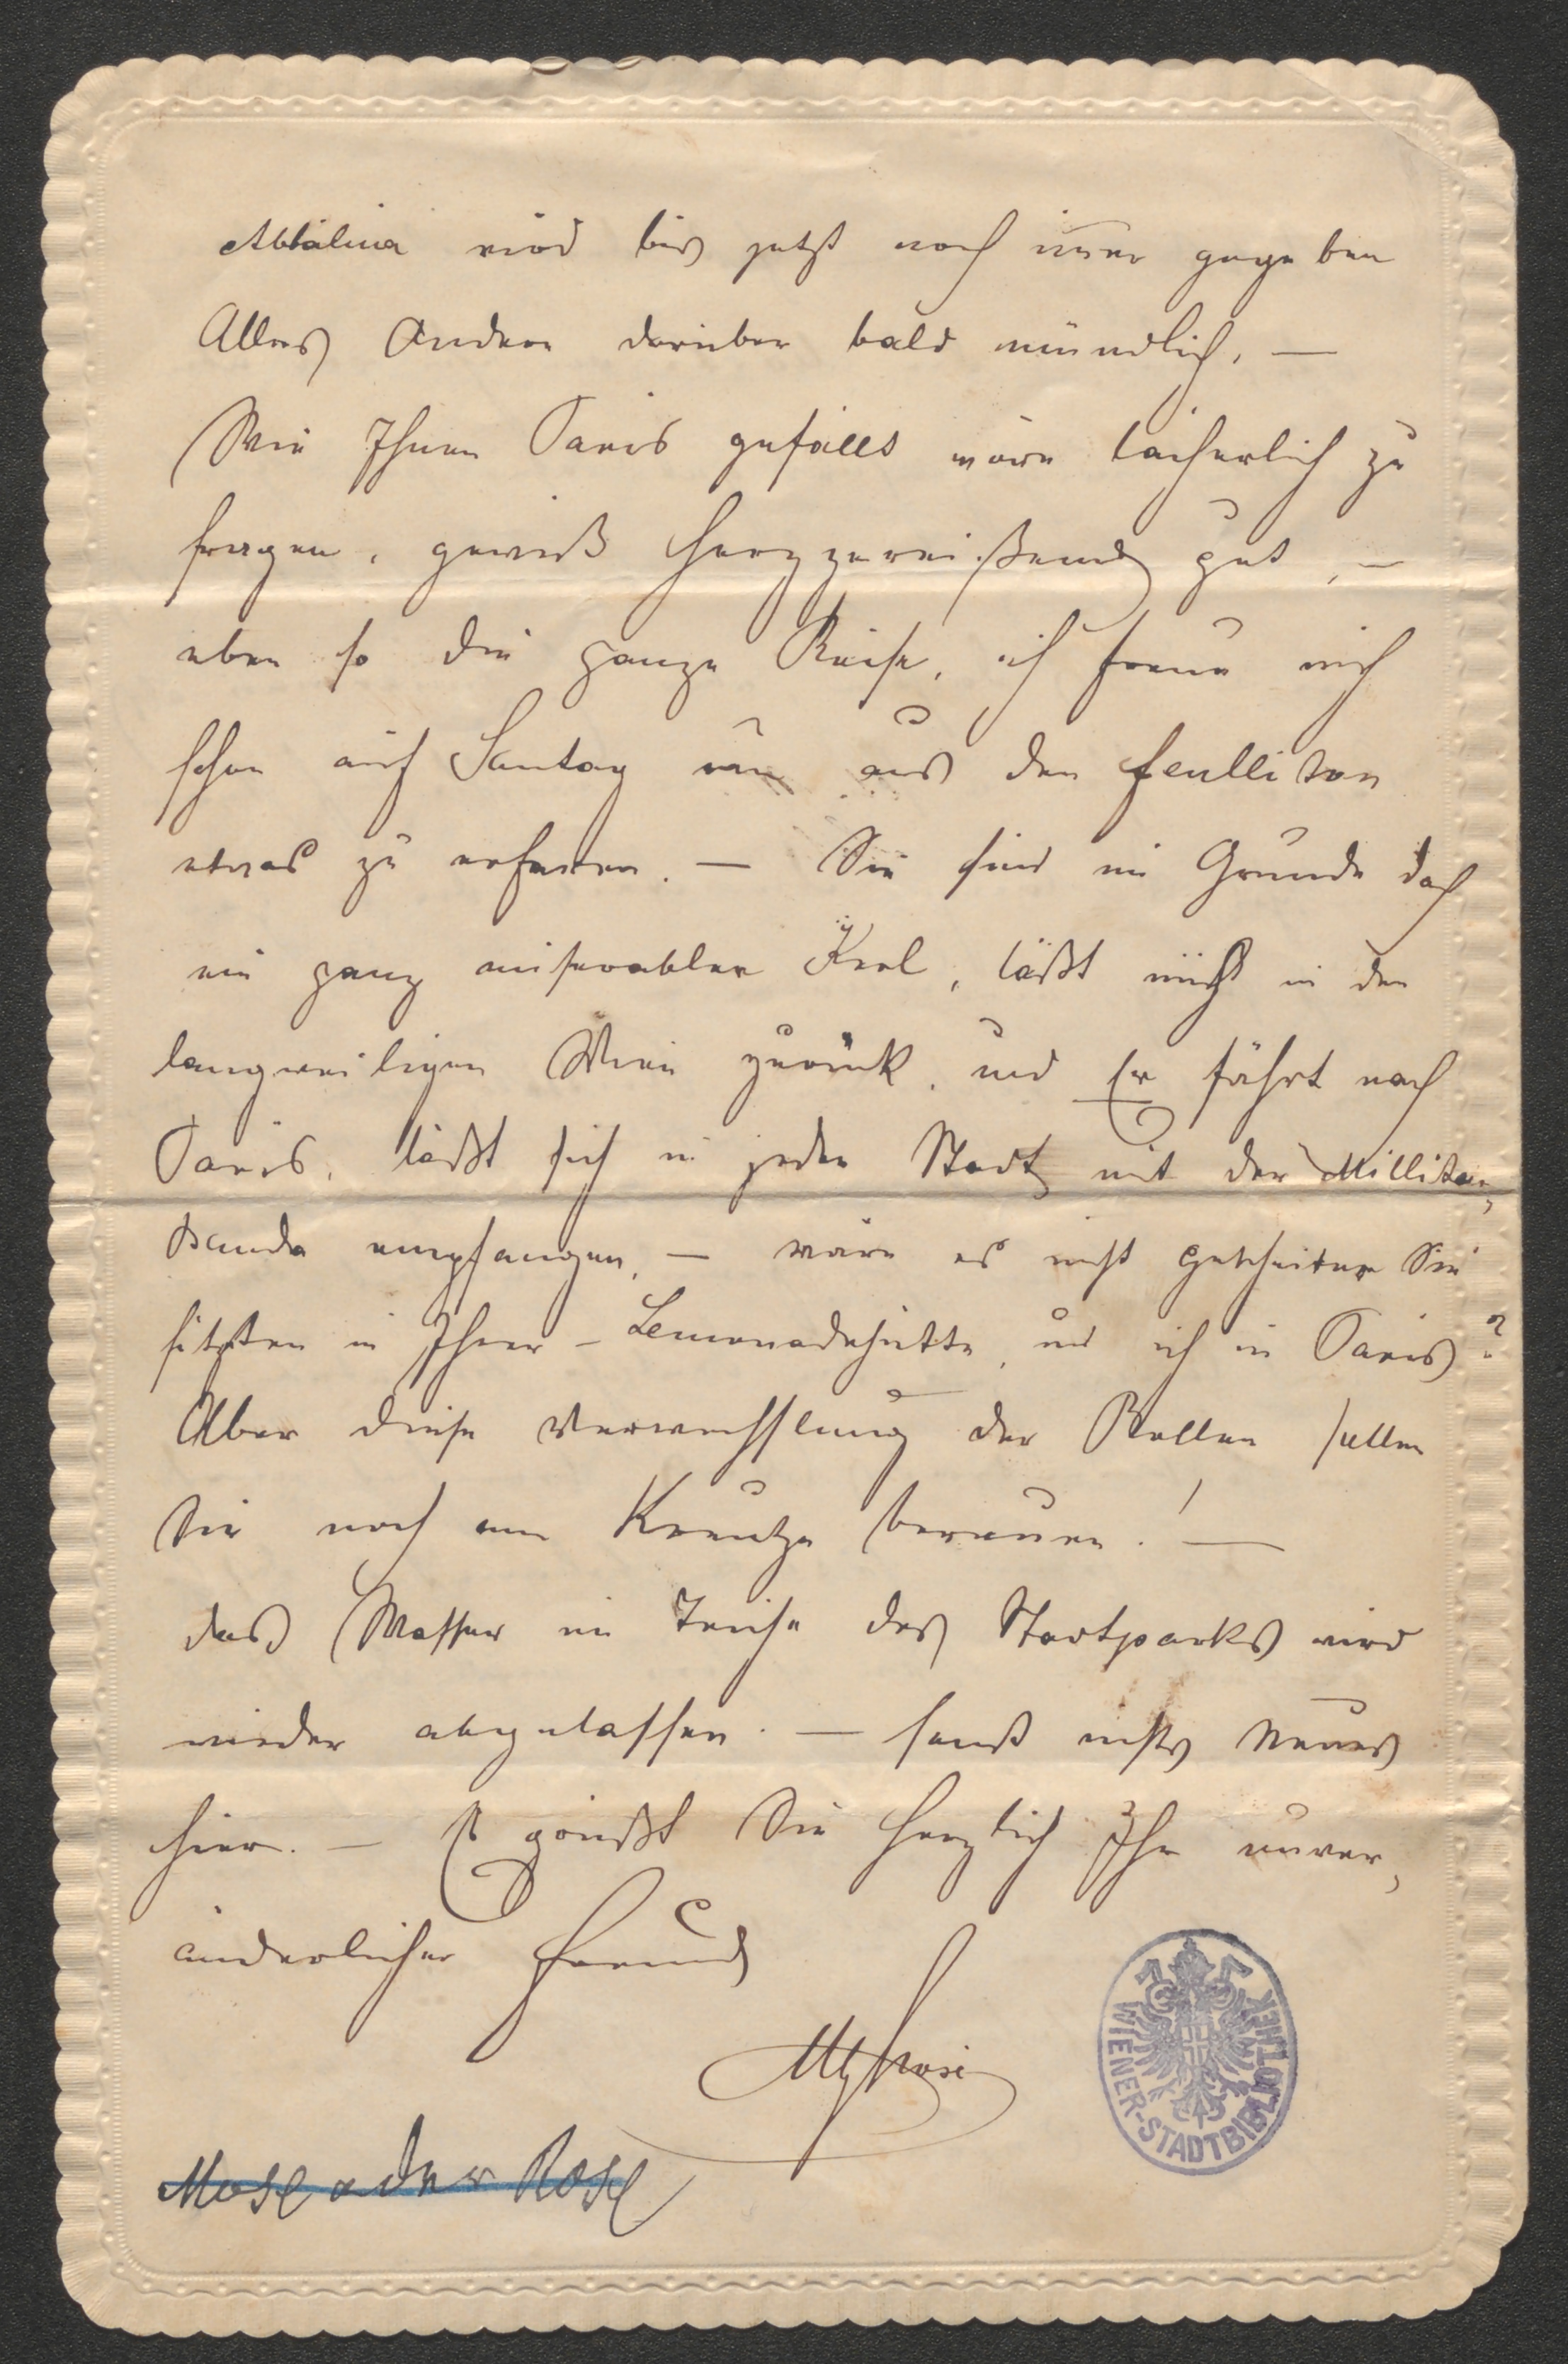 Attalina wird bis jetzt noch im̅er gegeben
Alles Andere darüber bald mündlich. —
Wie Ihnen Paris gefällt wäre lächerlich zu
fragen, gewiß herzzereißend gut, —
eben so die ganze Reise, ich freue mich
schon auf Santag um aus den feulliton
etwas zu erfaren. — Sie sind im Grunde doch
ein ganz miserabler Kerl, läßt mich in den
langweiligen Wien zurück, und Er fährt nach
Paris, läßt sich in jeder Stadt mit der Millitär,
banda empfangen, — wäre es nicht gescheiter Sie
sitzten in Ihrer – Lemonadehütte, und ich in Paris?
Aber diese Verwechslung der Rollen sollen
Sie noch am Kreutze bereuen! —
das Wasser im Teiche des Stadtparks wird
wieder abgelassen. — sonst nichts Neues
hier. — Es grüßt Sie herzlich Ihr unver,
änderlicher Freund
Mose oder Rose
WIENER-STADTBIBLIOTHEK